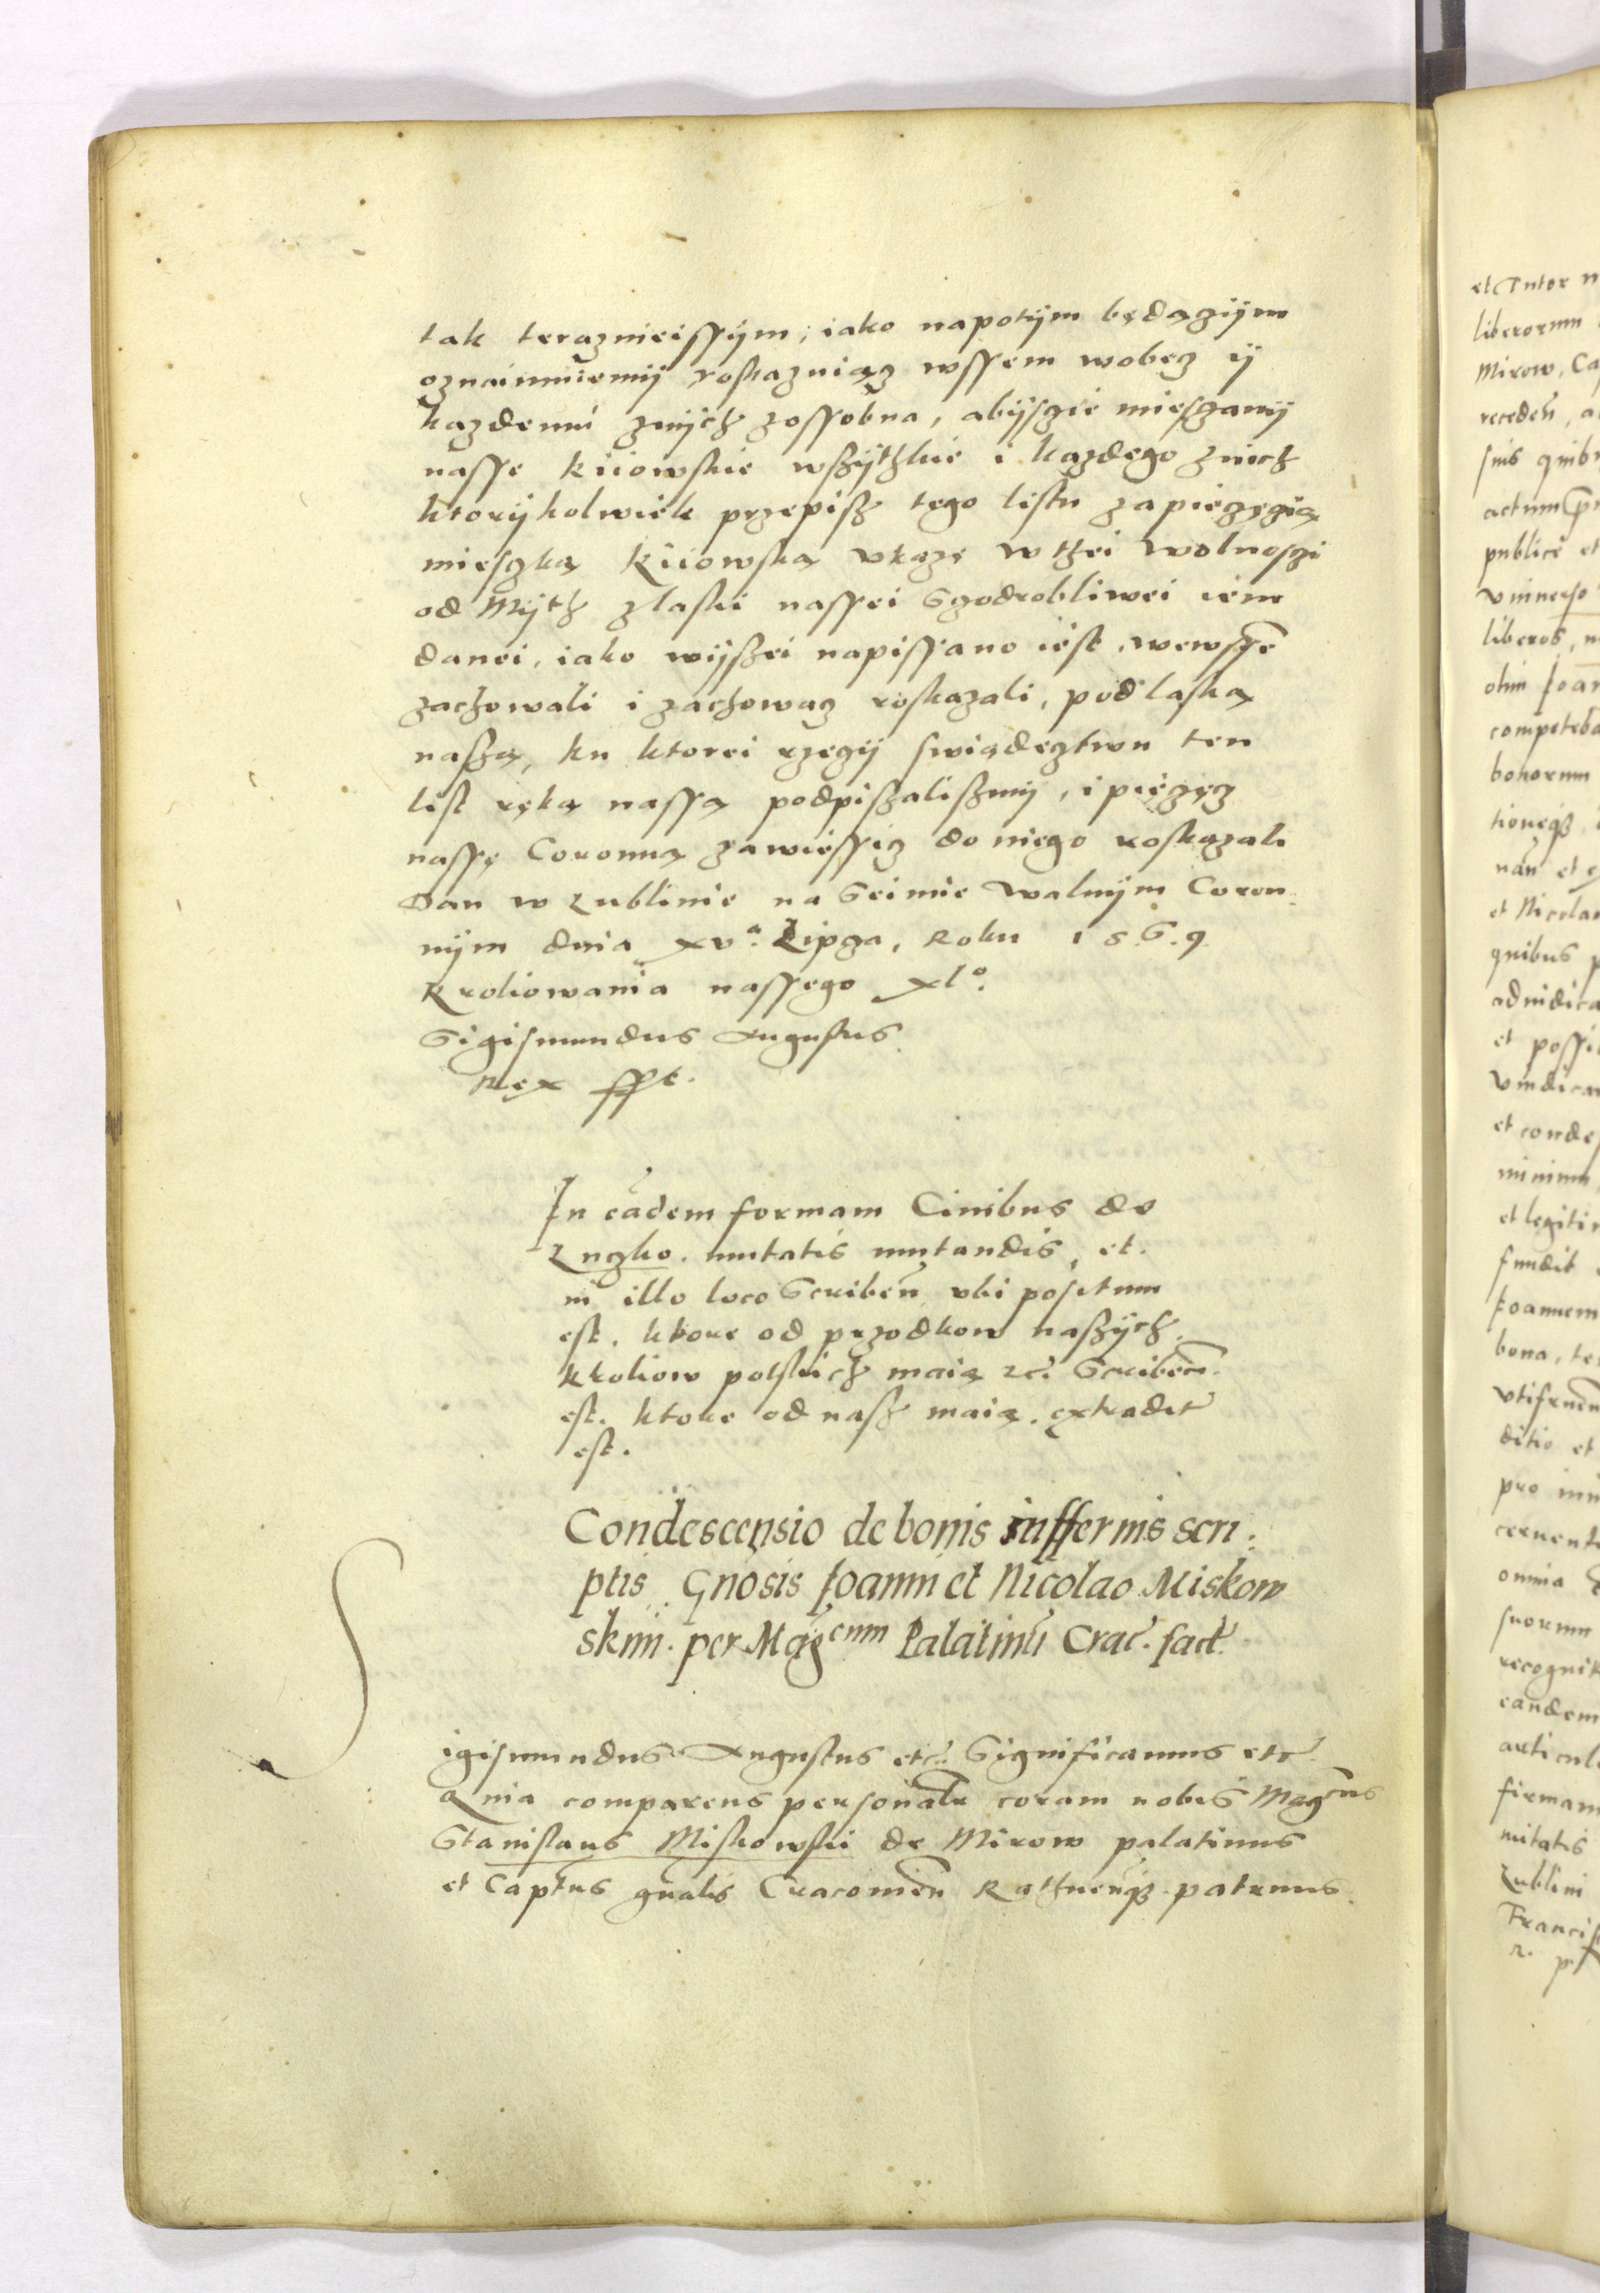 tak teraznieissÿm, iako napotÿm będącÿm
oznaimuiemÿ roskazuiącz wssem wobecz ÿ
kazdemu znÿch zossobna, abÿsczie miesczanÿ
nasse kiiowskie wszÿthkie i kazdego znich
ktorÿkolwiek przepisz tego listu zapieczęcią
mieszką kiiowską vkazę wthei wolnosczi
od Mÿth zlaski nassei Sczodrobliwei iem
danei, iako wÿszei napissano iest, wewsse
zachowali i zachowacz roskazali, pod laską
naszą, ku ktorei rzeczÿ swiadecztwu ten
list ręką nassą podpiszaliszmÿ, i pieczęcz
nassę Coronną zawiessicz do niego roskazali
Dan w Lublinie na Seimie walnÿm Coron
nÿm dnia xvª Lipcza, Roku 1 5 6 9
kroliowania nassego xlº
Sigismundus Augustus
Rex sspt.
In eadem formam Ciuibus de
Luczko. mutatis mutandis, et
in illo loco Scriben vbi positum
est. ktore od przodkow naszÿch
kroliow polskich maią etc. Scriben
est. ktore od nasz maią. extradit
est.
Condescensio de bonis inffernis scri
ptis Gnosis Joanni et Nicolao Miskow
skim. per Magcum Palatinu Crac. fact.
Sigismundus Augustus etc. Significamus etc.
Quia comparens personalr coram nobis Magcus
Stanislaus Miskowski de Mirow palatinus
et Captus gnalis Cracouien Rathnenqz patruus
et Tutor n
liberorum
Mirow, Ca
receden, a
suis quib
actum pr
publice et
vniuerso
liberos, n
olim Joan
competeba
bonorum
tioneqz
nan et e
et Nicola
quibus p
adiudica
et possi
vindica
et condes
minimu
et legitim
fundit
Joannem
bona, te
vtifruen
ditio et
pro
ceruent
omnia
suorum
recognit
eandem
articul
firmam
mitatis
Lublini
Francis